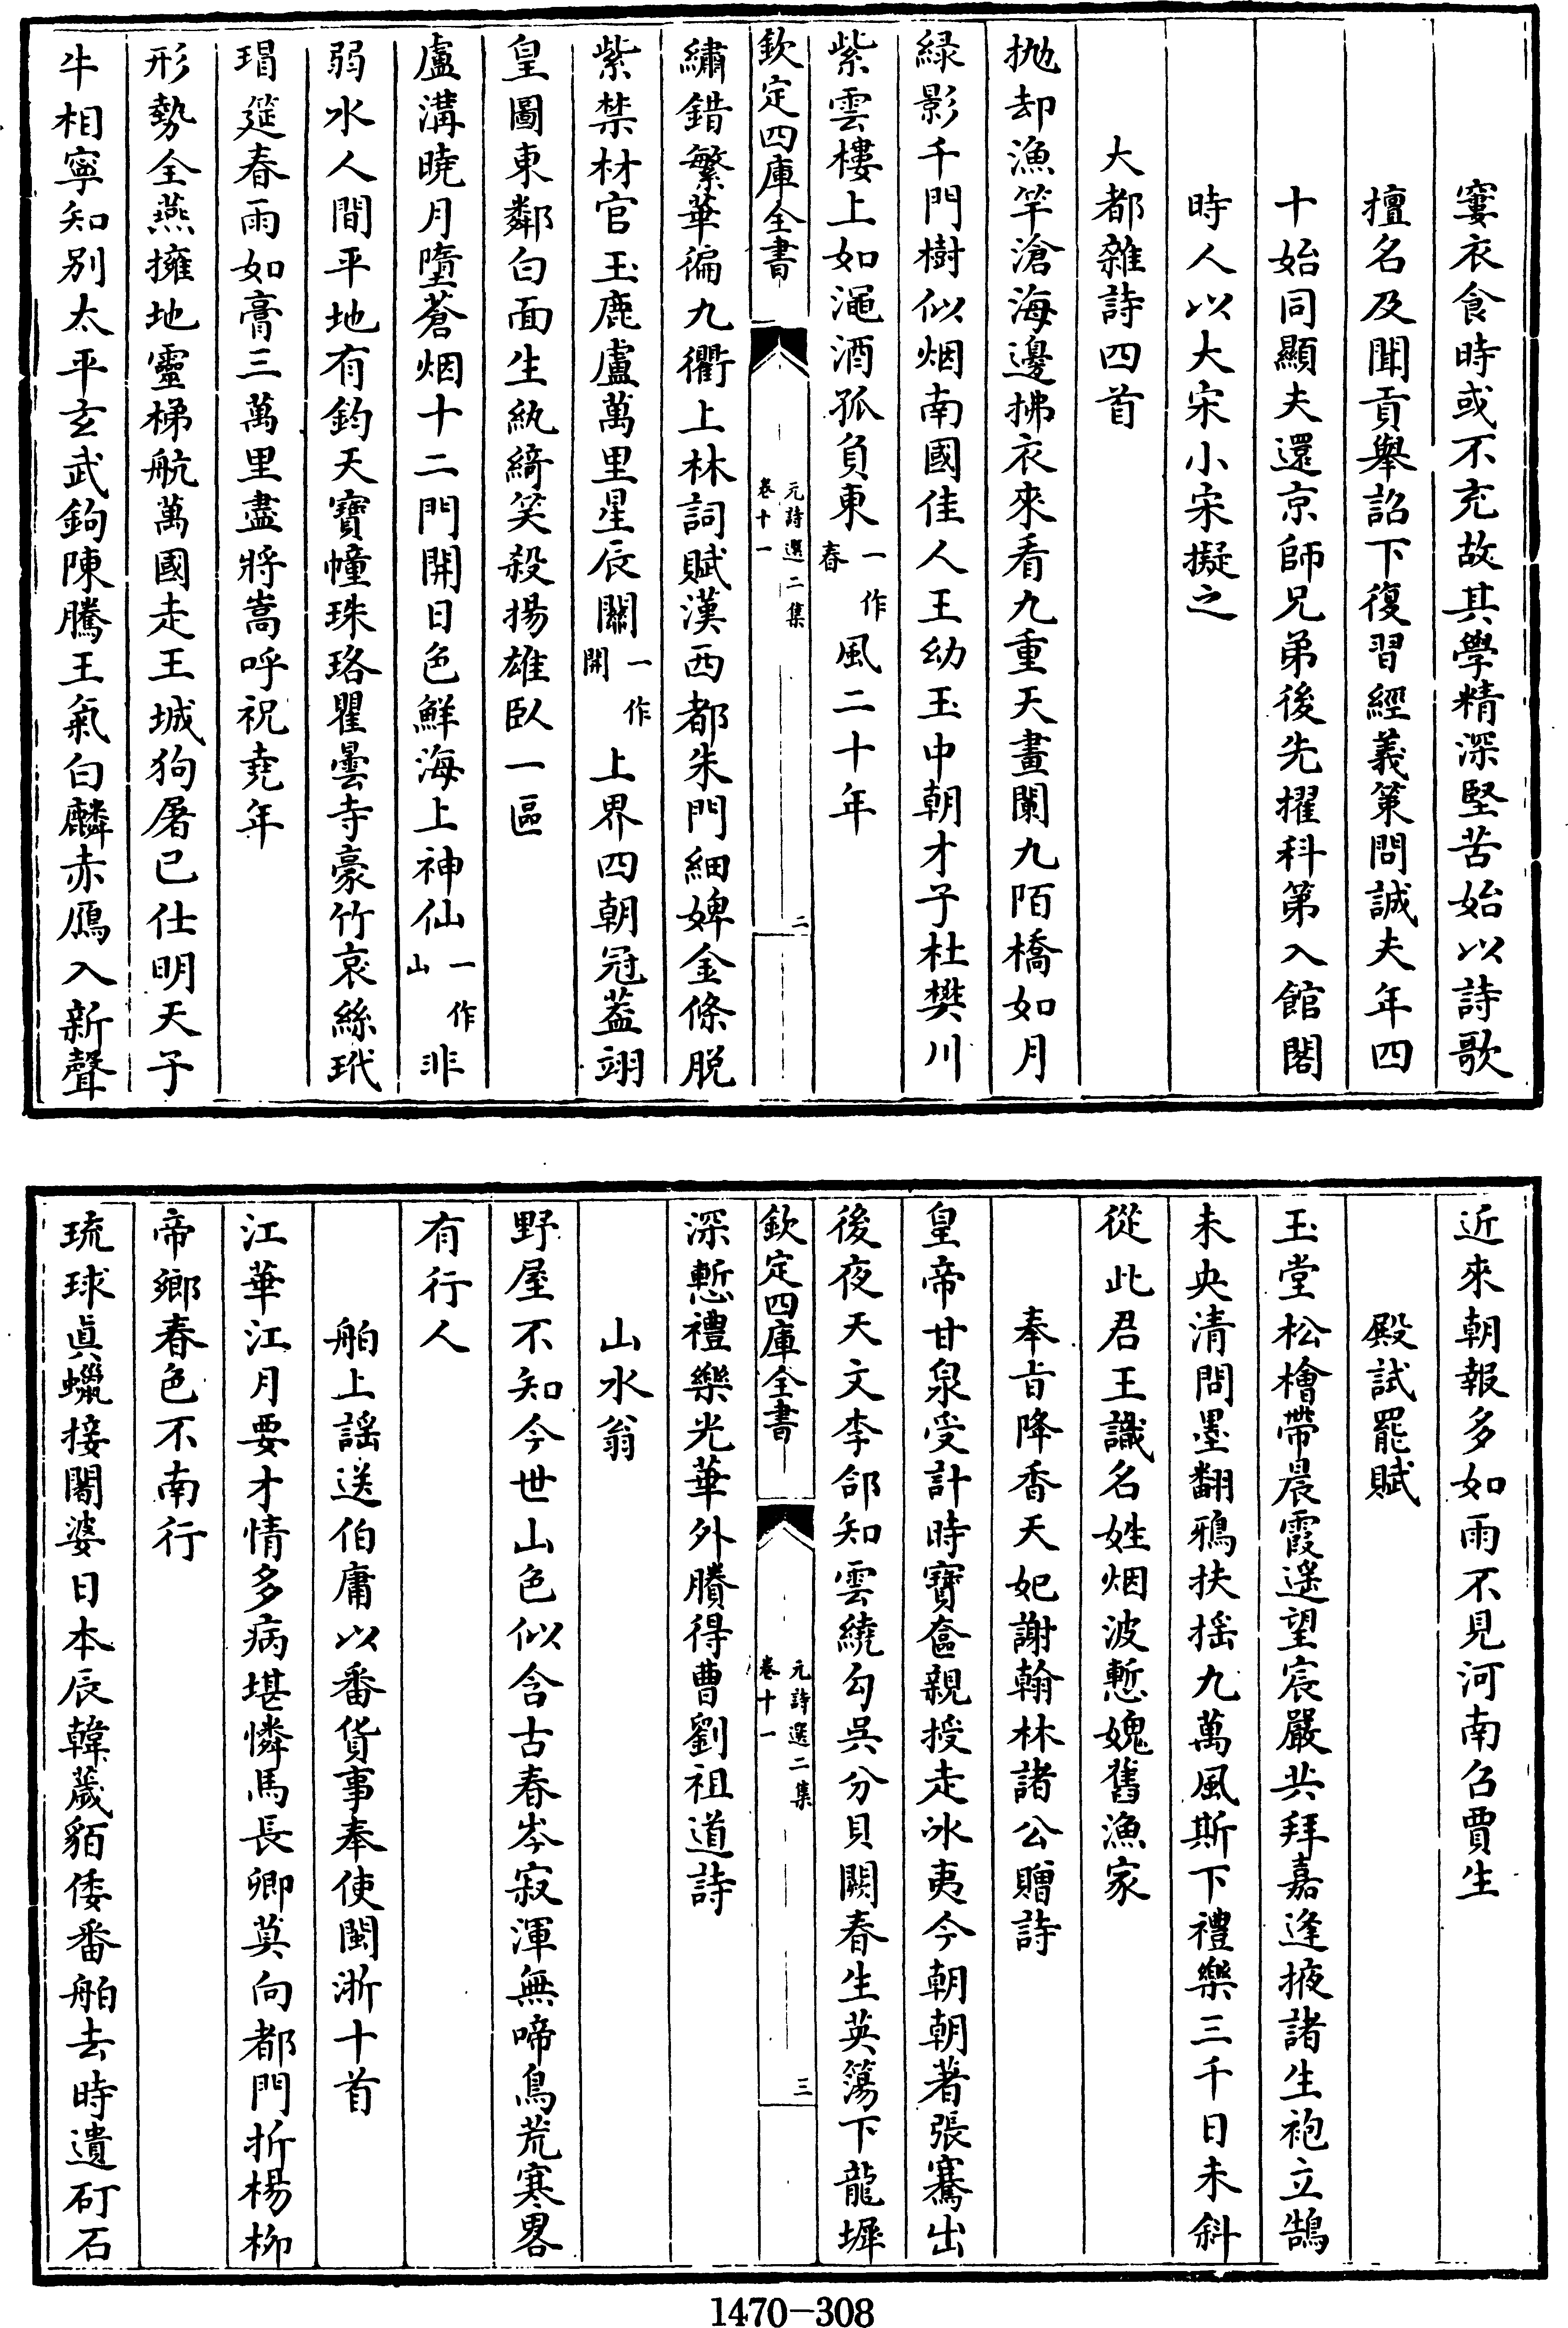 窶衣食時或不充故其學精深堅苦始以詩歌
擅名及聞貢舉詔下復習經義策問誠夫年四
十始同顯夫還京師兄弟後先擢科第入館閣
時人以大宋小宋擬之
大都雜詩四首
抛却漁竿滄海邊拂衣來看九重天晝闌九陌橋如月
緑影千門樹似烟南國佳人王幼玉中朝才子杜樊川
紫雲樓上如澠酒孤負東一作春風二十年
欽定四庫全書
元詩選二集
卷十一
二
繡錯繁華徧九衢上林詞賦漢西都朱門細婢金條脱
紫禁材官玉鹿盧萬里星辰關一作開上界四朝冠蓋翊
皇圖東鄰白面生紈綺笑殺揚雄臥一區
盧溝曉月墮蒼烟十二門開日色鮮海上神仙一作山非
弱水人間平地有鈞天寶幢珠珞瞿曇寺豪竹哀絲玳
瑁筵春雨如膏三萬里盡將嵩呼祝堯年
形勢全燕擁地靈梯航萬國走王城狗屠已仕明天子
牛相寧知别太平玄武鉤陳騰王氣白麟赤鴈入新聲
近來朝報多如雨不見河南召賈生
殿試罷賦
玉堂松檜帶晨霞遥望宸嚴共拜嘉逢掖諸生袍立鵠
未央清問墨翻鴉扶摇九萬風斯下禮樂三千日未斜
從此君王識名姓烟波慙媿舊漁家
奉旨降香天妃謝翰林諸公贈詩
皇帝甘泉受計時寶奩親授走冰夷今朝朝著張騫出
後夜天文李郃知雲繞勾吳分貝闕春生英簜下龍墀
欽定四庫全書
元詩選二集
卷十一
三
深慙禮樂光華外賸得曹劉祖道詩
山水翁
野屋不知今世山色似含古春岑寂渾無啼鳥荒寒畧
有行人
舶上謡送伯庸以番貨事奉使閩浙十首
江華江月要才情多病堪憐馬長卿莫向都門折楊柳
帝鄉春色不南行
琉球眞蠟接闍婆日本辰韓薉貊倭番舶去時遺矴石
1470-308